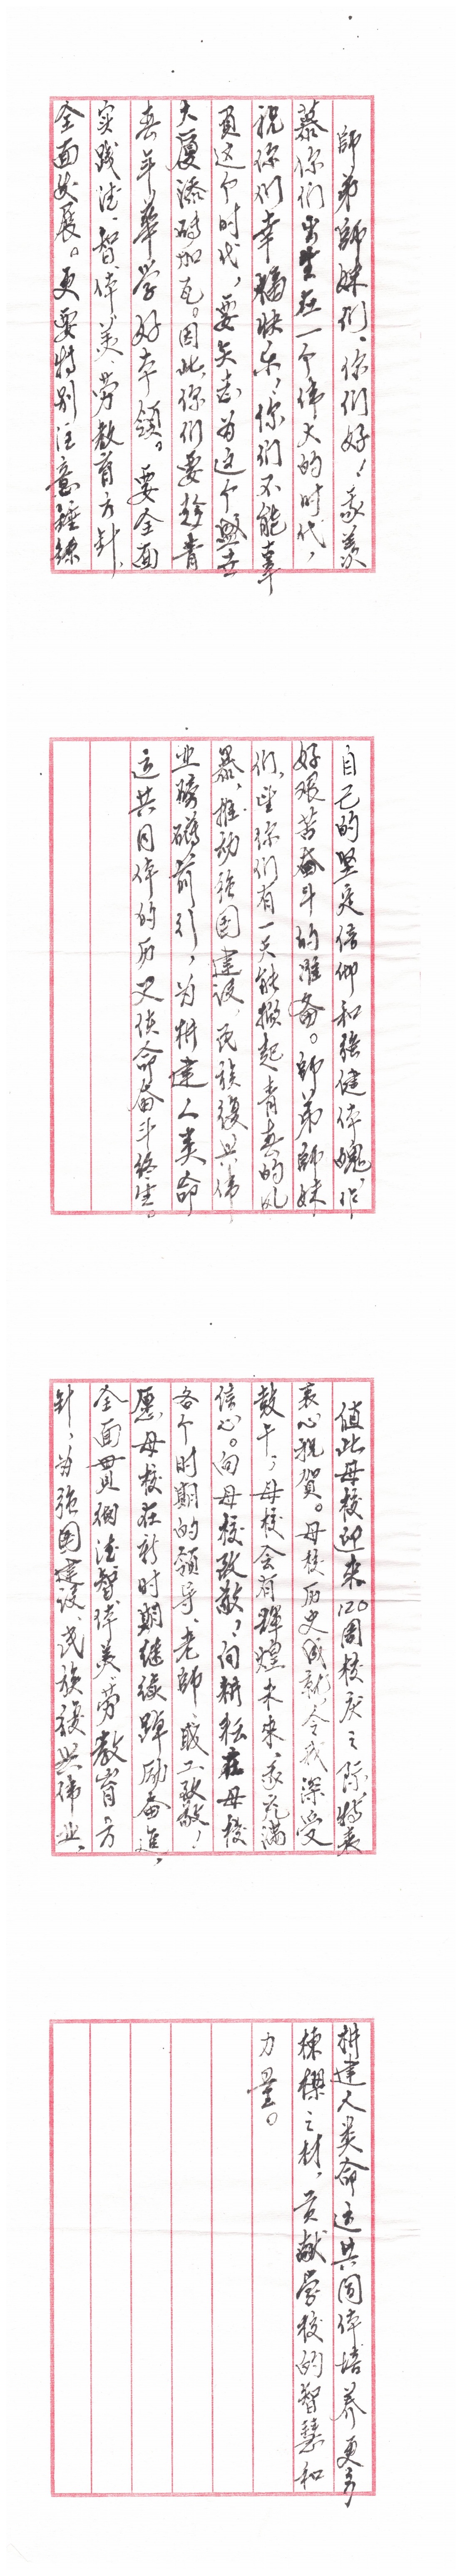 師弟師妹们、你们好！我羡
慕你们出生在一个偉大的时代，
祝你们幸福快乐，你们不能辜
負这个时代，要矢志为这个盛世
大廈添磚加瓦。因此，你们要趁青
春年華学好本領。要全面
实践德、智、体、美、勞教育方針，
全面发展。更要特别注意錘鍊
自己的坚定信仰和强健体魄，作
好艰苦奋斗的准备。師弟師妹
们，望你们有一天能掀起青春的风
暴，推动强国建设、民族復兴偉
业磅礴前行，为构建人类命
运共同体的历史使命奋斗终生。
值此母校迎来120周校庆之际特表
衷心祝賀。母校历史成就，令我深受
鼓午，母校会有輝煌未来，我充满
信心。向母校致敬，向耕耘在母校
各个时期的領导、老師、职工致敬！
愿母校在新时期继续踔励奋進，
全面贯徹德智体美、勞教育方
針，为强国建设、民族復兴偉业、
构建人类命运共同体培养更多
棟樑之材，贡献学校的智慧和
力量。